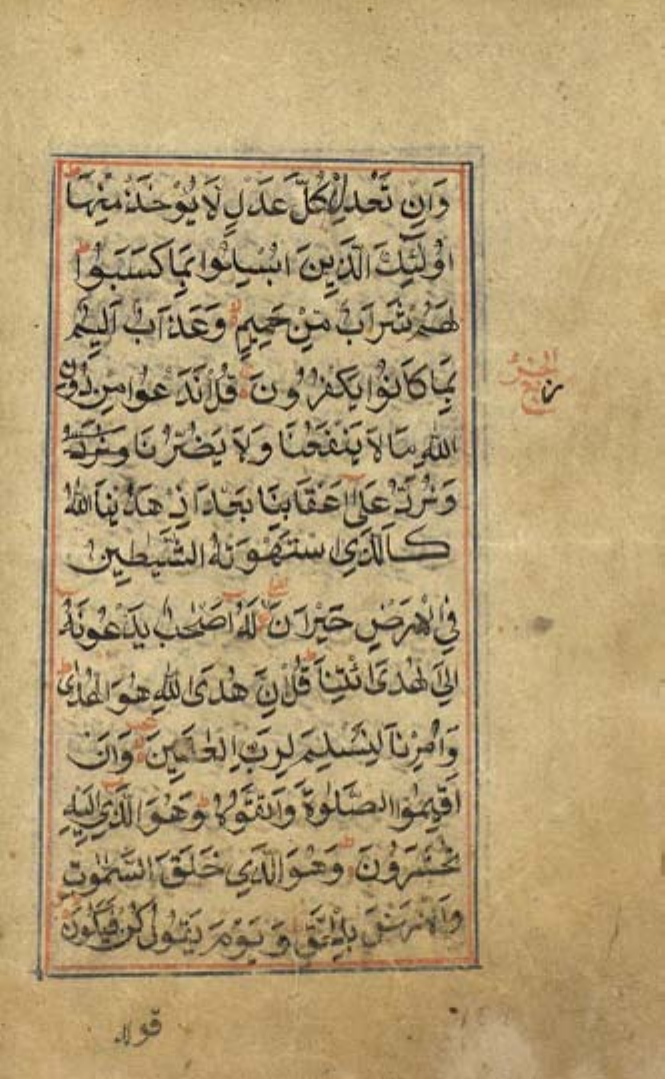 وَاِنْ تَعْدِلْ كُلَّ عَدْلٍ لَا يُؤْخَذْ مِنْهَا
اُولٰٓئِكَ الَّذِيْنَ اُبْسِلُوْا بِمَا كَسَبُوْا
لَهُمْ شَرَابٌ مِّنْ حَمِيْمٍ وَعَذَابٌ اَلِيْمٌ
بِمَا كَانُوْا يَكْفُرُوْنَ قُلْ اَنَدْعُوْا مِنْ دُوْنِ
اللّٰهِ مَا لَا يَنْفَعُنَا وَلَا يَضُرُّنَا وَنُرَدُّ
وَنُرَدُّ عَلٰٓى اَعْقَابِنَا بَعْدَ اِذْ هَدٰىنَا اللّٰهُ
كَالَّذِى اسْتَهْوَتْهُ الشَّيٰطِيْنُ
فِى الْاَرْضِ حَيْرَانَ لَهٗٓ اَصْحٰبٌ يَّدْعُوْنَهٗٓ
اِلَى الْهُدَى ائْتِنَا قُلْ اِنَّ هُدَى اللّٰهِ هُوَ الْهُدٰى
وَاُمِرْنَا لِنُسْلِمَ لِرَبِّ الْعٰلَمِيْنَ وَاَنْ
اَقِيْمُوا الصَّلٰوةَ وَاتَّقُوْهُ وَهُوَ الَّذِىْٓ اِلَيْهِ
تُحْشَرُوْنَ وَهُوَ الَّذِىْ خَلَقَ السَّمٰوٰتِ
وَالْاَرْضَ بِالْحَقِّ وَيَوْمَ يَقُوْلُ كُنْ فَيَكُوْنُ
قوله